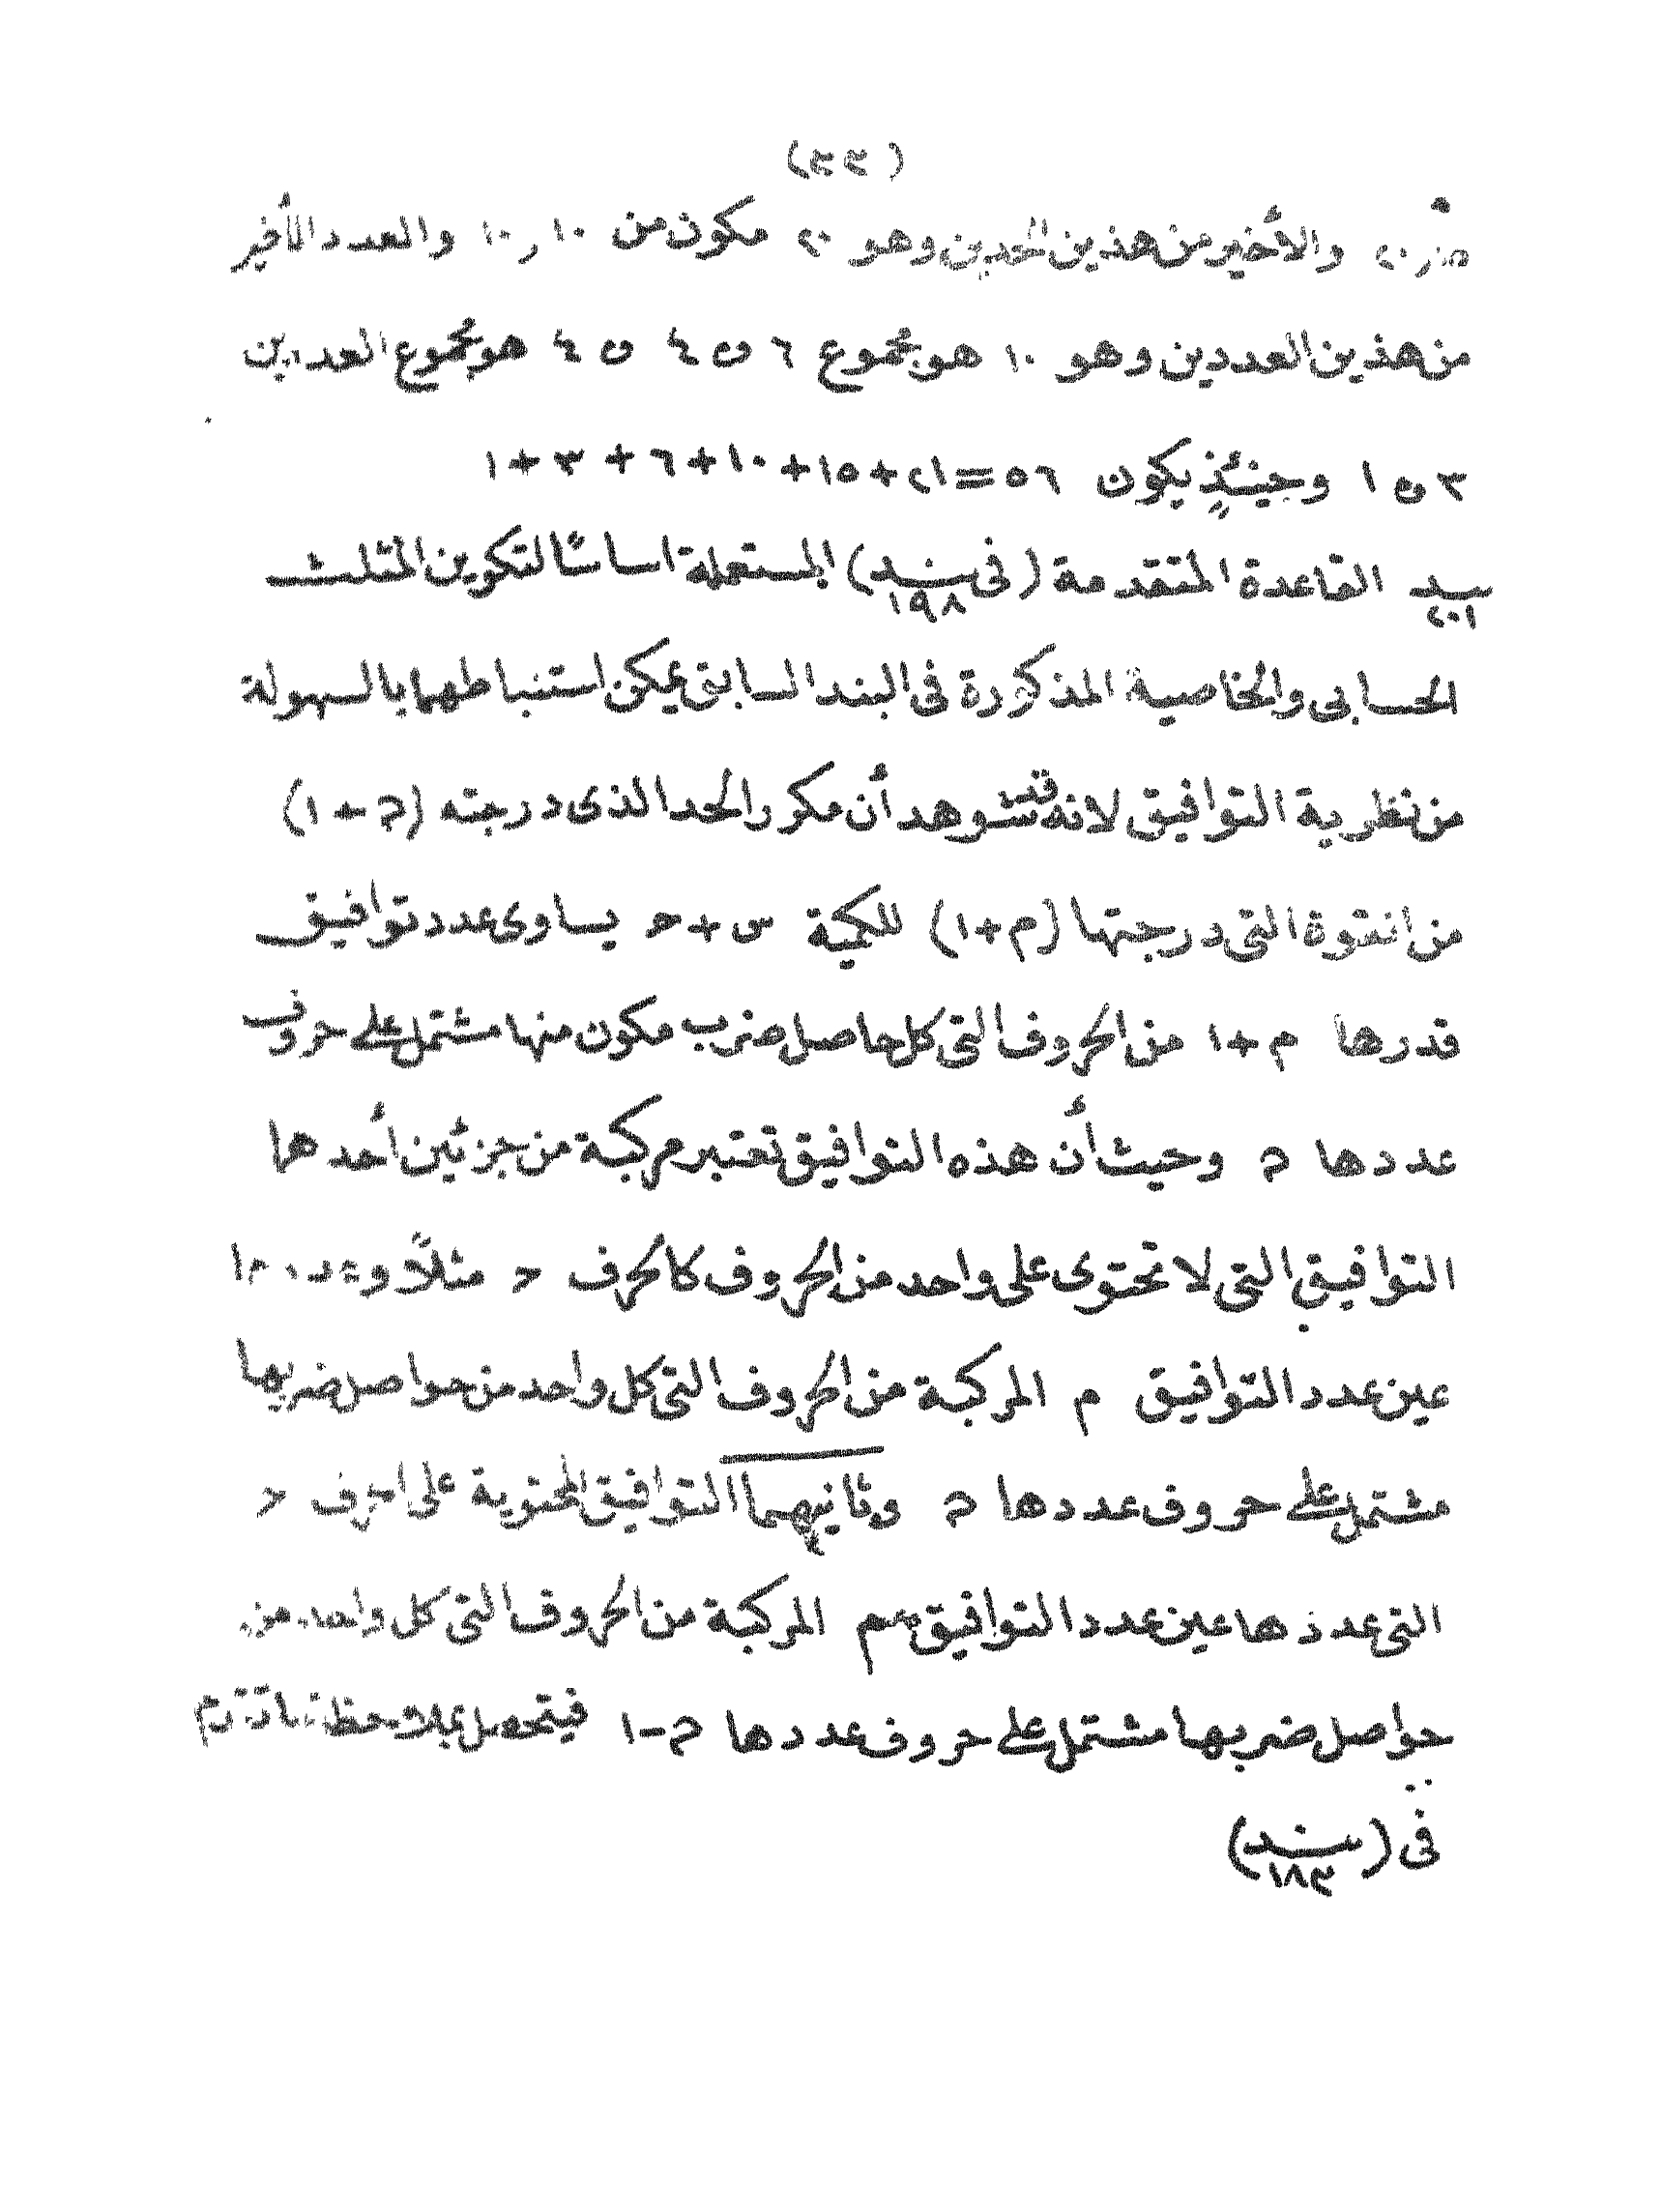 (٣٣)
٢٠٫١٥ والأخير من هذين الحدين وهو ٢٠ مكون من ١٠ ر ١٠ والعدد الأخير
من هذين العددين وهو ١٠ هو مجموع ٦ ن ٤ ن ٤ هو مجموع العددين
٣ ن ١ وحينئذٍ يكون ٥٦=٢١+١٥+١٠+٦+٣+١
بند ٢٠١ القاعدة المتقدمة (فى بند ١٩٨) المستعملة اساسًا لتكوين المثلث
الحسابى والخاصية المذكورة فى البند السابق يمكن استنباطهما بالسهولة
من نظرية التوافيق لانه قد شوهد أن مكرر الحد الذى درجته (م+١)
من القوة التى درجتها (م+١) للكمية س+ح يساوى عدد توافيق
قدرها م+١ من الحروف التى كل حاصل ضرب مكون منها مشتمل على حروف
عددها م وحيث أن هذه التوافيق تعتبر مركبة من جزئين أحدهما
التوافيق التى لا تحتوى على واحد من الحروف كالحرف ح مثلًا وعددها
عين عدد التوافيق م المركبة من الحروف التى كل واحد من حواصل ضربها
مشتمل على حروف عددها م وثانيهما التوافيق المحتوية على احرف ح
التى عددها عين عدد التوافيق م المركبة من الحروف التى كل واحد من
حواصل ضربها مشتمل على حروف عددها م-١ فيتحصل بملاحظة ما تقدم
فى (بند ١٨٣)